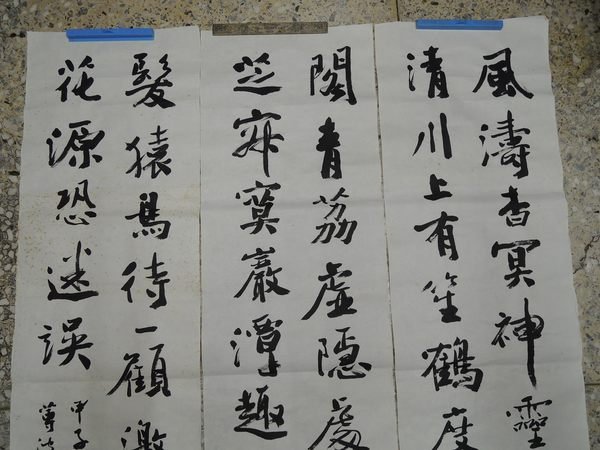 風濤杳冥神靈
清川上有笙鶴度
閣青荔虛隱處
芝寂寞巖潭趣
髮猿鳥待一顧
花源恐迷誤
甲子